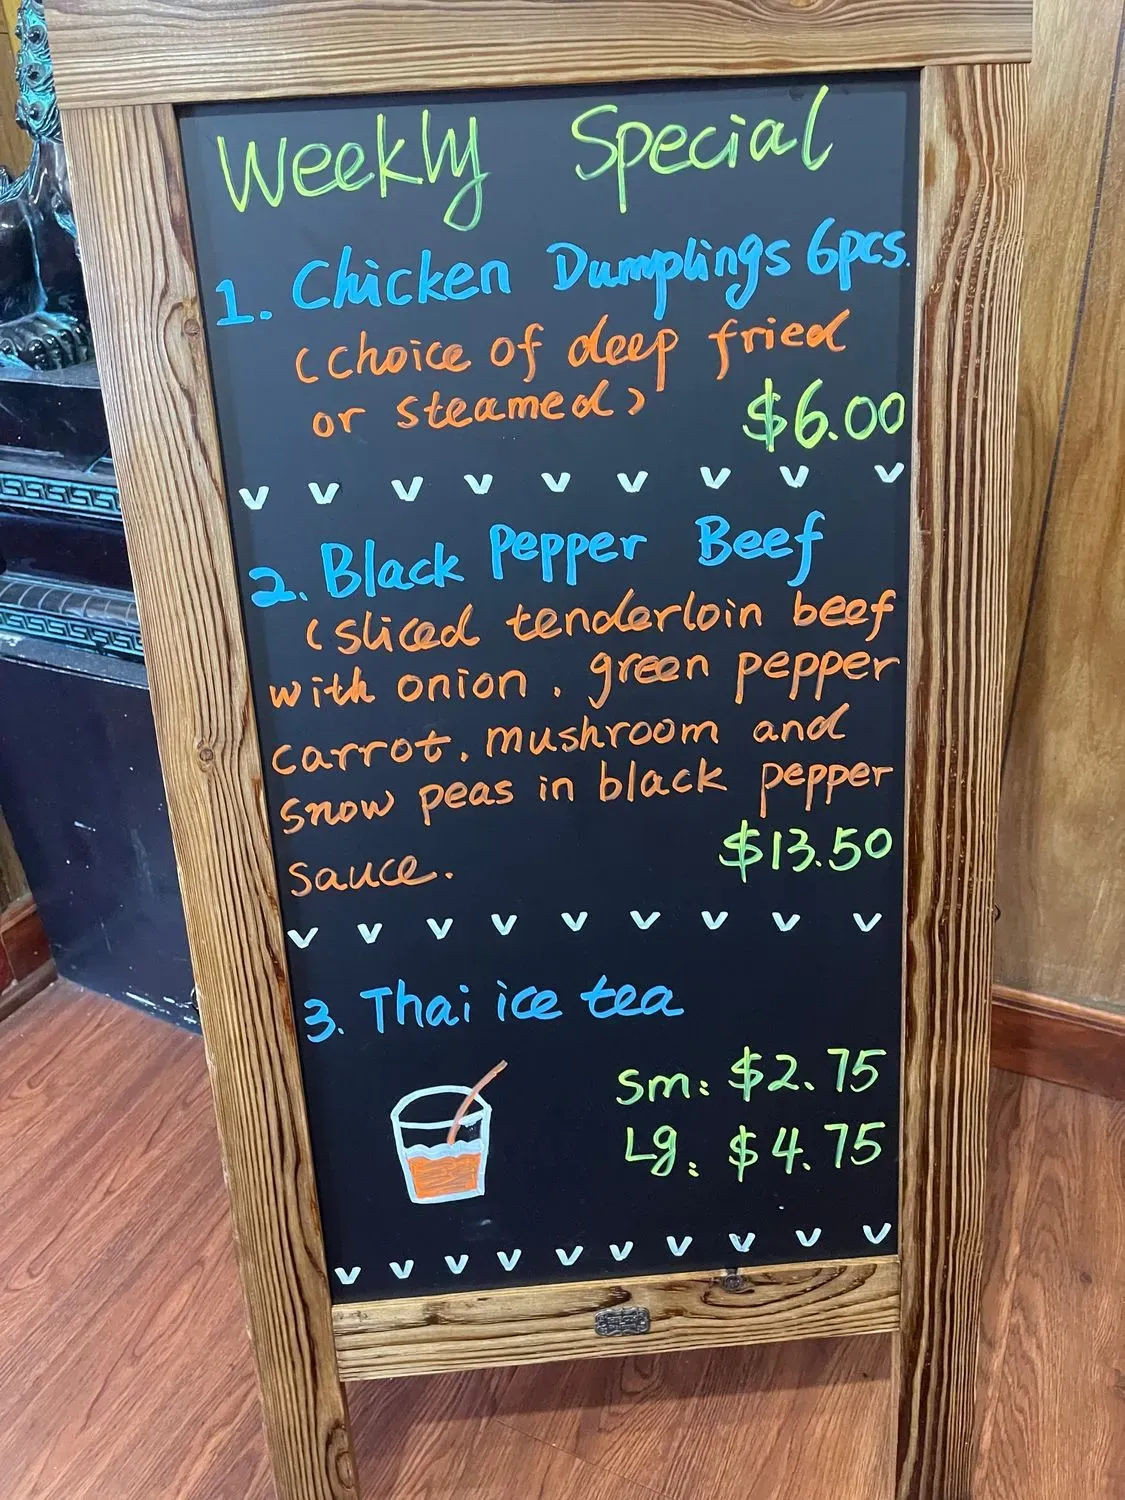 Weekly Special
1. Chicken Dumplings 6pcs.
(choice of deep fried
or steamed)
$6.00
2. Black Pepper Beef
(sliced tenderloin beef
with onion, green pepper
carrot, mushroom and
snow peas in black pepper
sauce.
$13.50
3. Thai ice tea
Sm: $2.75
Lg: $4.75